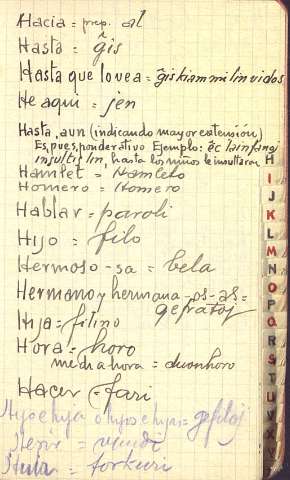 Hacia = prep. al
Hasta = ĝis
Hasta que lo vea = ĝis kiam mi lin vidos
He aquí = jen
Hasta, aun (indicando mayor extensión)
Es, pues, ponderativo Ejemplo: eĉ la infanoj
insultis lin, hasta los niños le insultaron
Hamlet = Hamleto
Homero = Homero
Hablar = paroli
Hijo = filo
Hermoso-sa = bela
Hermano y hermana-os-as=
gefratoj
Hija = filino
Hora = horo
media hora = duonhoro
Hacer = fari
Hijo e hija o hijos e hijas = gefiloj
H
I
J
K
L
M
N
O
P
Q
R
S
T
U
V
X
Y